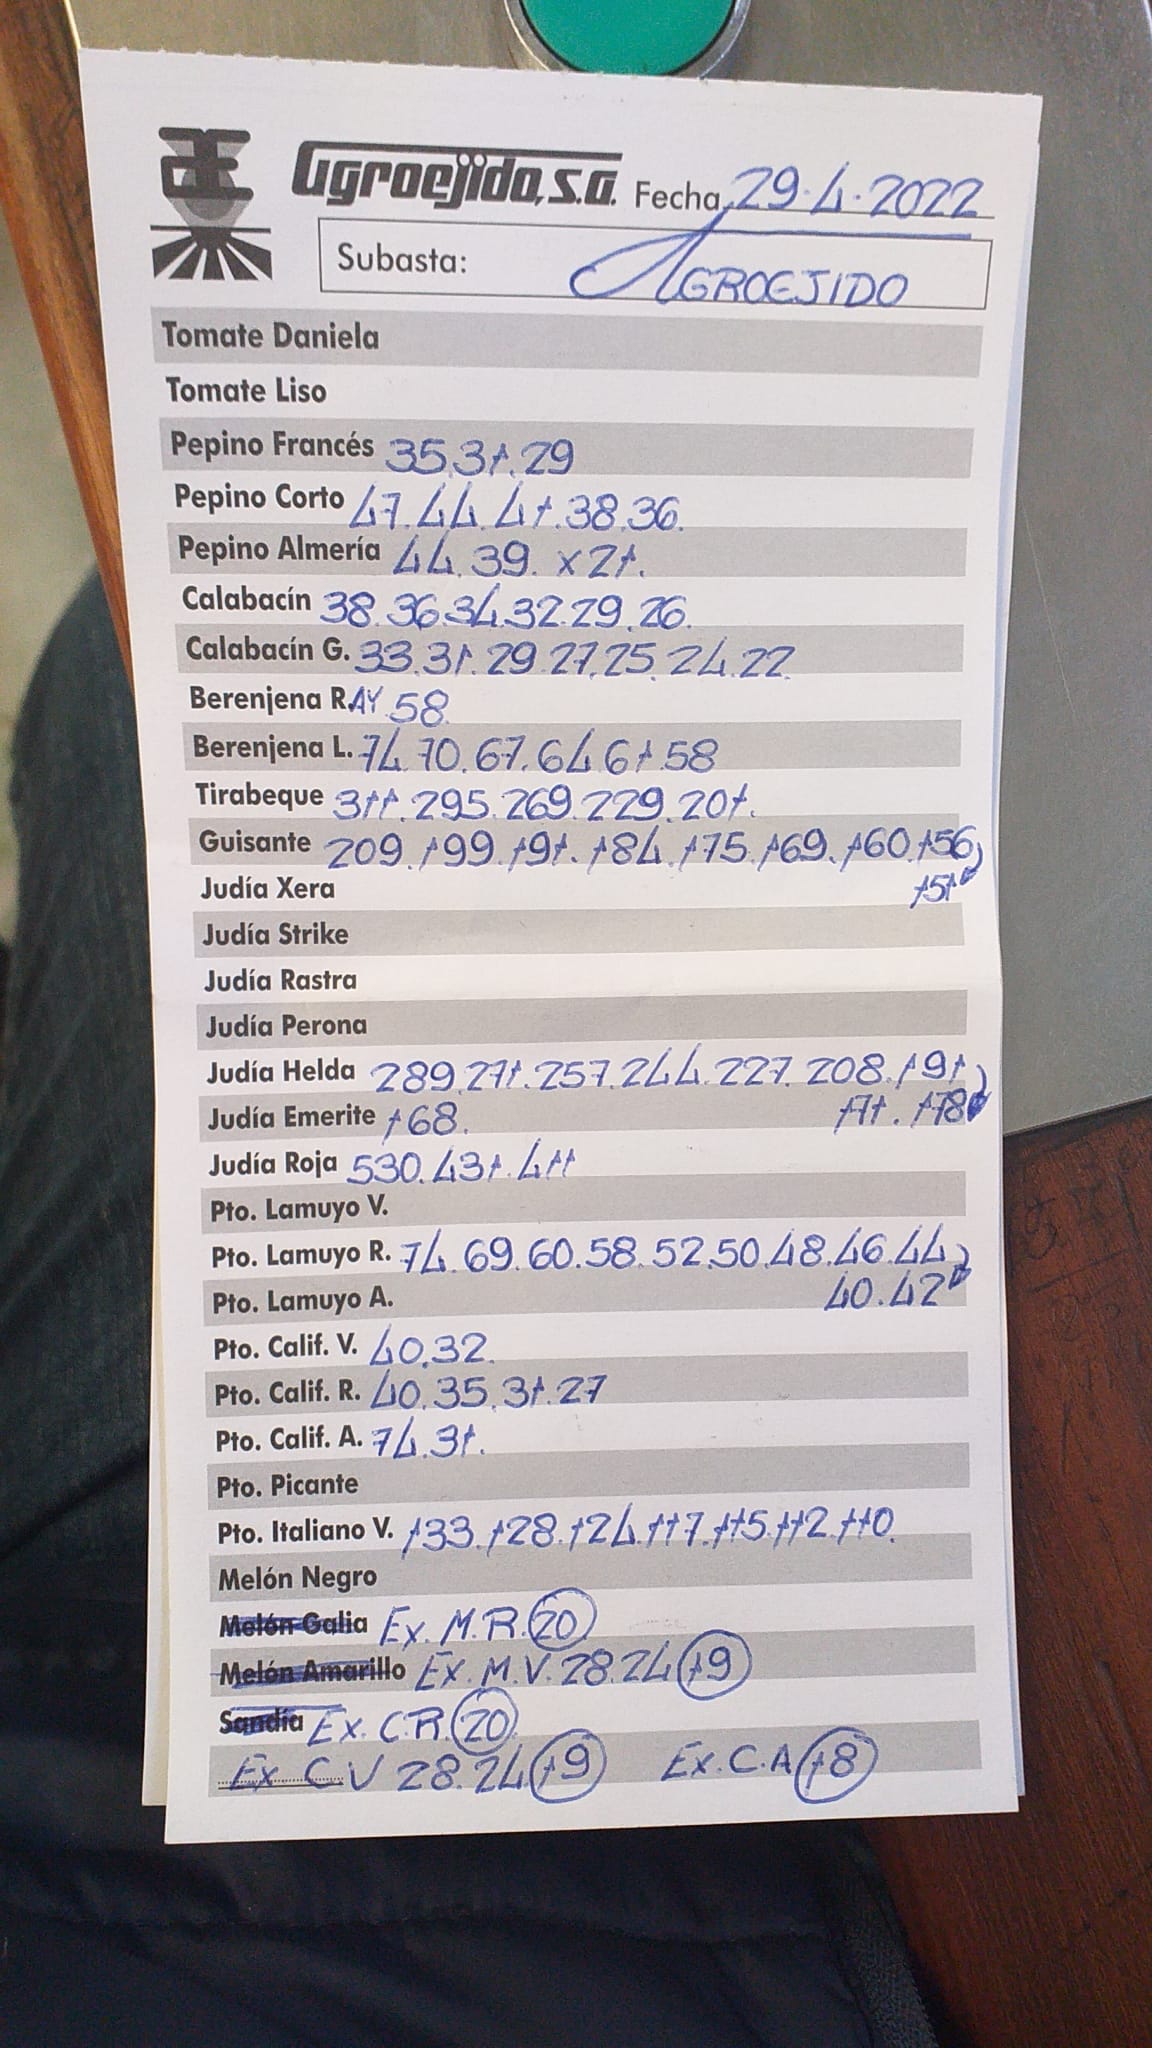 Agroejido, S.A. Fecha 29.4.2022
Subasta: AGROEJIDO
Tomate Daniela
Tomate Liso
Pepino Francés 35.31.29
Pepino Corto 47.44.41.38.36.
Pepino Almería 44.39. x21.
Calabacín 38.36.34.32.29.26.
Calabacín G. 33.31.29.27.25.24.22.
Berenjena RAY 58.
Berenjena L. 74.70.67.64.61.58
Tirabeque 311.295.269.229.201.
Guisante 209.199.191.184.175.169.160.156
151
Judía Xera
Judía Strike
Judía Rastra
Judía Perona
Judía Helda 289.271.257.244.227.208.191
171.178
Judía Emerite 168.
Judía Roja 530.431.411
Pto. Lamuyo V.
Pto. Lamuyo R. 74.69.60.58.52.50.48.46.44
40.42
Pto. Lamuyo A.
Pto. Calif. V. 40.32.
Pto. Calif. R. 40.35.31.27
Pto. Calif. A. 74.31.
Pto. Picante
Pto. Italiano V. 133.128.124.117.115.112.110.
Melón Negro
Melón Galia Ex. M.R. 20
Melón Amarillo Ex. M.V. 28.24 19
Sandía Ex. C.R. 20
Ex C.V 28.24 19 Ex.C.A 18